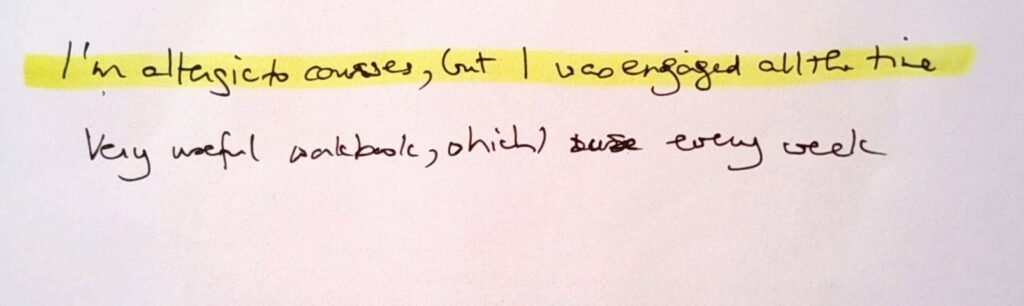 I'm allergic to courses, but I was engaged all the time
Very useful workbook, which I use every week